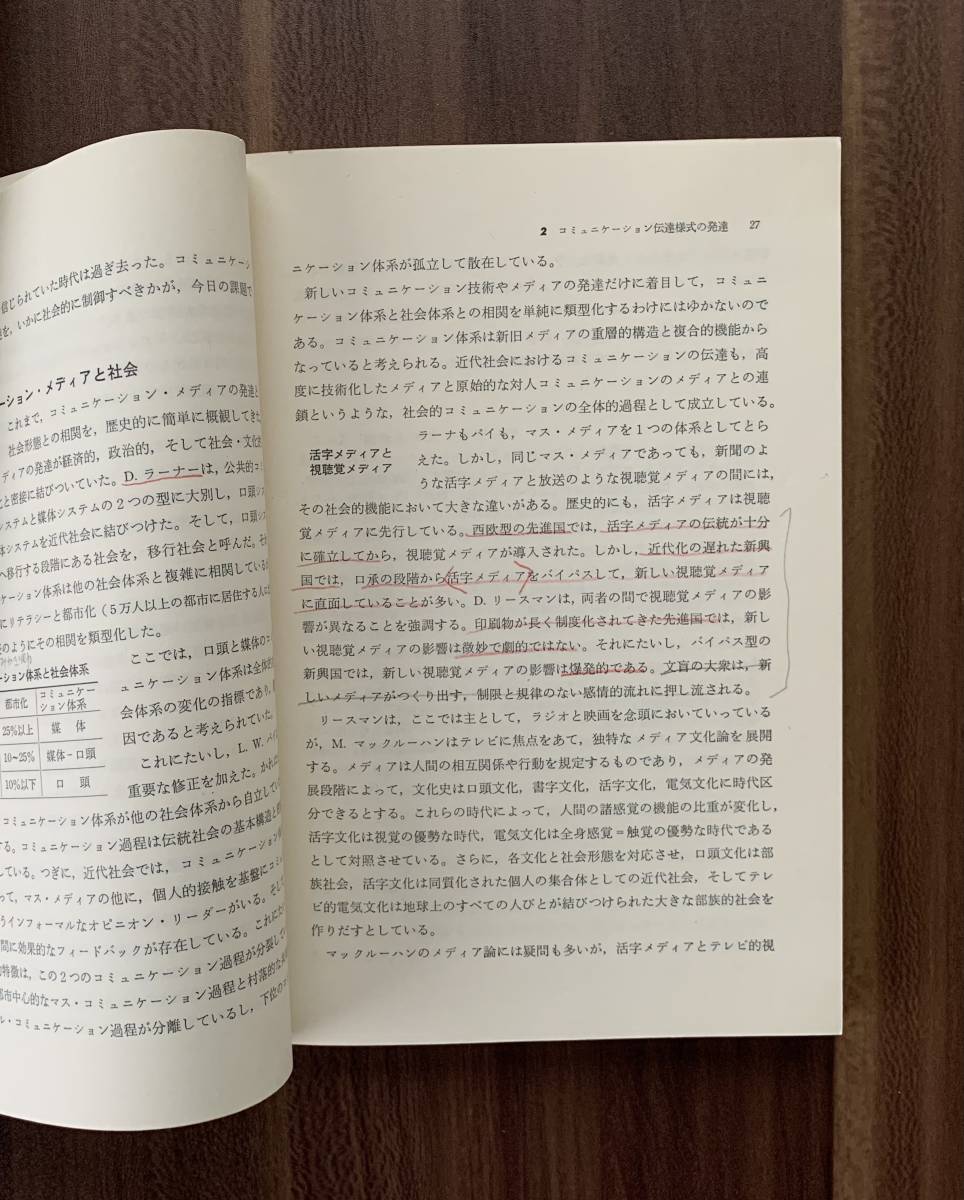 信じられていた時代は過ぎ去った。コミュニケーシ
を，いかに社会的に制御すべきかが，今日の課題で
ーション・メディアと社会
これまで，コミュニケーション・メディアの発達と
社会形態との相関を，歴史的に簡単に概観してきた
ディアの発達が経済的，政治的，そして社会・文化
と密接に結びついていた。D. ラーナーは，公共的コミ
システムと媒体システムの2つの型に大別し，口頭シ
体システムを近代社会に結びつけた。そして，口頭シ
へ移行する段階にある社会を，移行社会と呼んだ。そ
ケーション体系は他の社会体系と複雑に相関している
にリテラシーと都市化（5万人以上の都市に居住する人
のようにその相関を類型化した。
ーション体系と社会体系
都市化 コミュニケーション体系
25%以上 媒体
10~25% 媒体-口頭
10%以下 口頭
ここでは，口頭と媒体のコ
ュニケーション体系は全体的
会体系の変化の指標であり，
因であると考えられていた。
これにたいし，L. W. パイ
重要な修正を加えた。かれ
コミュニケーション体系が他の社会体系から自立してい
する。コミュニケーション過程は伝統社会の基本構造と
している。つぎに，近代社会では，コミュニケーション
って，マス・メディアの他に，個人的接触を基盤にコミ
うインフォーマルなオピニオン・リーダーがいる。そし
間に効果的なフィードバックが存在している。これにた
特徴は，この2つのコミュニケーション過程が分裂して
都市中心的なマス・コミュニケーション過程と村落的な
ル・コミュニケーション過程が分離しているし，下位のコ
2 コミュニケーション伝達様式の発達 27
ニケーション体系が孤立して散在している。
新しいコミュニケーション技術やメディアの発達だけに着目して，コミュニ
ケーション体系と社会体系との相関を単純に類型化するわけにはゆかないので
ある。コミュニケーション体系は新旧メディアの重層的構造と複合的機能から
なっていると考えられる。近代社会におけるコミュニケーションの伝達も，高
度に技術化したメディアと原始的な対人コミュニケーションのメディアとの連
鎖というような，社会的コミュニケーションの全体的過程として成立している。
活字メディアと
視聴覚メディア
ラーナもパイも，マス・メディアを1つの体系としてとら
えた。しかし，同じマス・メディアであっても，新聞のよ
うな活字メディアと放送のような視聴覚メディアの間には，
その社会的機能において大きな違いがある。歴史的にも，活字メディアは視聴
覚メディアに先行している。西欧型の先進国では，活字メディアの伝統が十分
に確立してから，視聴覚メディアが導入された。しかし，近代化の遅れた新興
国では，口承の段階から活字メディアをバイパスして，新しい視聴覚メディア
に直面していることが多い。D. リースマンは，両者の間で視聴覚メディアの影
響が異なることを強調する。印刷物が長く制度化されてきた先進国では，新し
い視聴覚メディアの影響は微妙で劇的ではない。それにたいし，バイパス型の
新興国では，新しい視聴覚メディアの影響は爆発的である。文盲の大衆は，新
しいメディアがつくり出す，制限と規律のない感情的流れに押し流される。
リースマンは，ここでは主として，ラジオと映画を念頭においていっている
が，M. マックルーハンはテレビに焦点をあて，独特なメディア文化論を展開
する。メディアは人間の相互関係や行動を規定するものであり，メディアの発
展段階によって，文化史は口頭文化，書字文化，活字文化，電気文化に時代区
分できるとする。これらの時代によって，人間の諸感覚の機能の比重が変化し，
活字文化は視覚の優勢な時代，電気文化は全身感覚＝触覚の優勢な時代である
として対照させている。さらに，各文化と社会形態を対応させ，口頭文化は部
族社会，活字文化は同質化された個人の集合体としての近代社会，そしてテレ
ビ的電気文化は地球上のすべての人びとが結びつけられた大きな部族的社会を
作りだすとしている。
マックルーハンのメディア論には疑問も多いが，活字メディアとテレビ的視